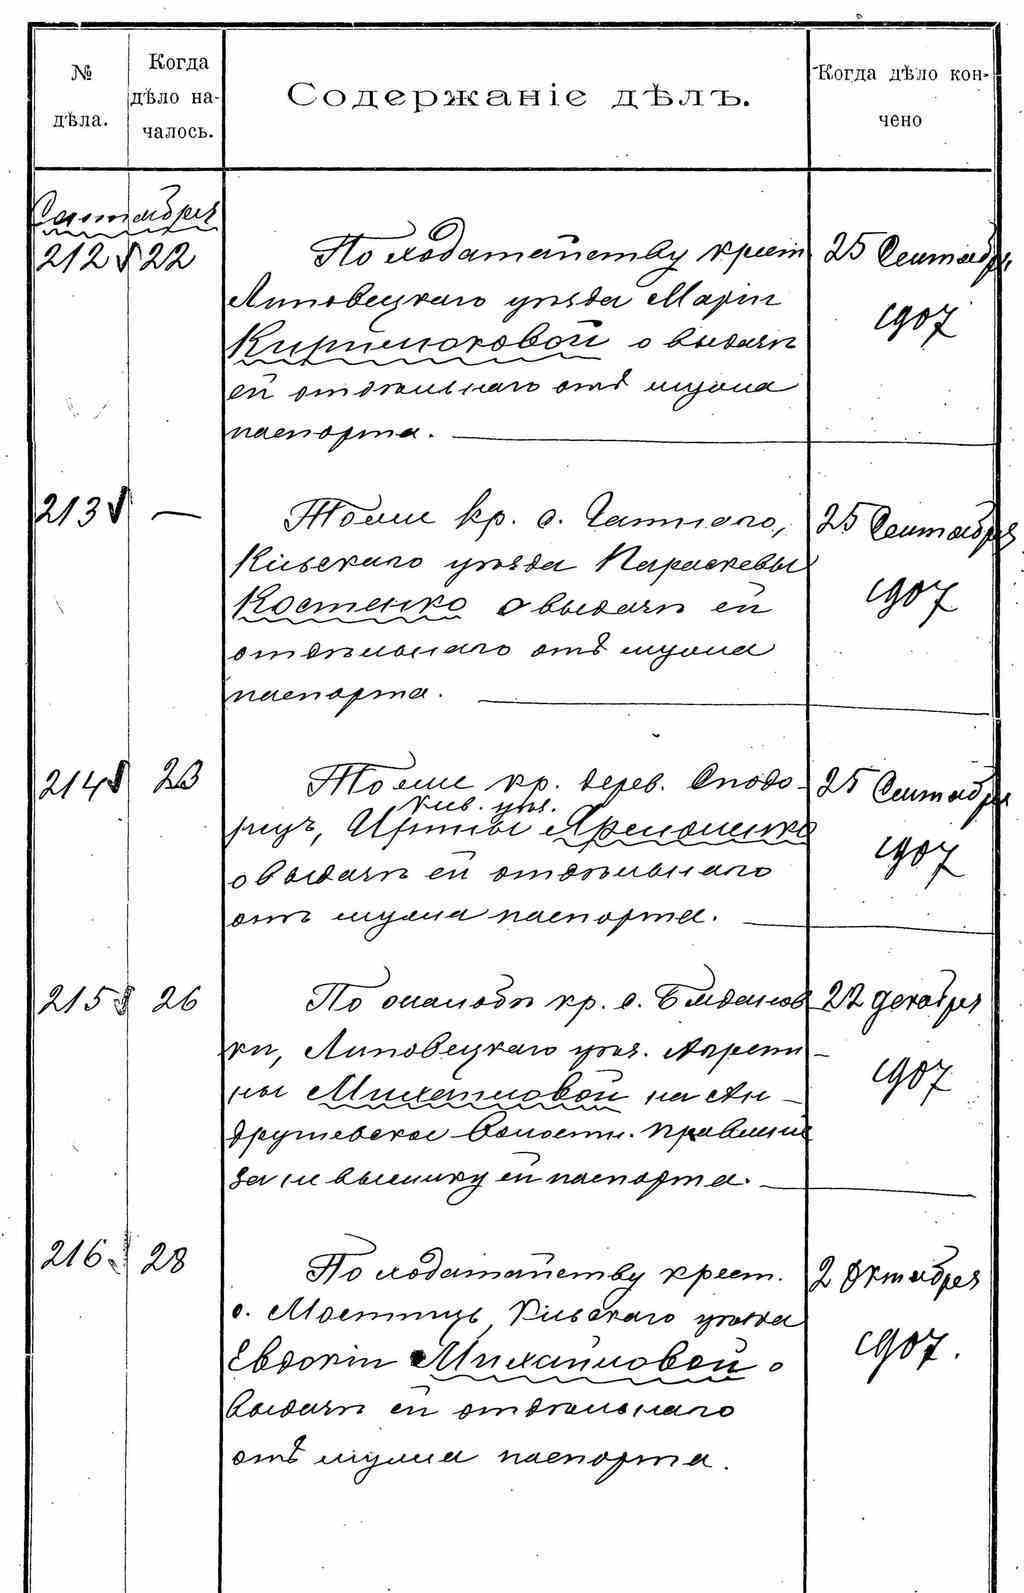 № дѣла.
Когда
дѣло на-
чалось.
Содержаніе дѣлъ.
Когда дѣло кон-
чено
Сентября
212 22 По ходатайству крест. 25 Сентября
Липовецкаго уѣзда Маріи 1907
Киримоковой о выдачѣ
ей отдѣльнаго отъ мужа
паспорта.
213 — Тоже кр. с. Гатнаго, 25 Сентября
Кіевскаго уѣзда Параскевы 1907
Костенко о выдачѣ ей
отдѣльнаго отъ мужа
паспорта.
214 23 Тоже кр. дерев. 25 Сентября
Кіев. уѣз.
Ирины 1907
о выдачѣ ей отдѣльнаго
отъ мужа паспорта.
215 26 По жалобѣ кр. с. 22 декабря
ки, Липовецкаго уѣз. 1907
ны Михайловой на Ан-
друшевское Волостн. Правленіе
за не высылку ей паспорта.
216 28 По ходатайству крест. 2 Октября
с. Мостищъ, Кіевскаго уѣзда 1907.
Евдокіи Михайловой о
выдачѣ ей отдѣльнаго
отъ мужа паспорта.